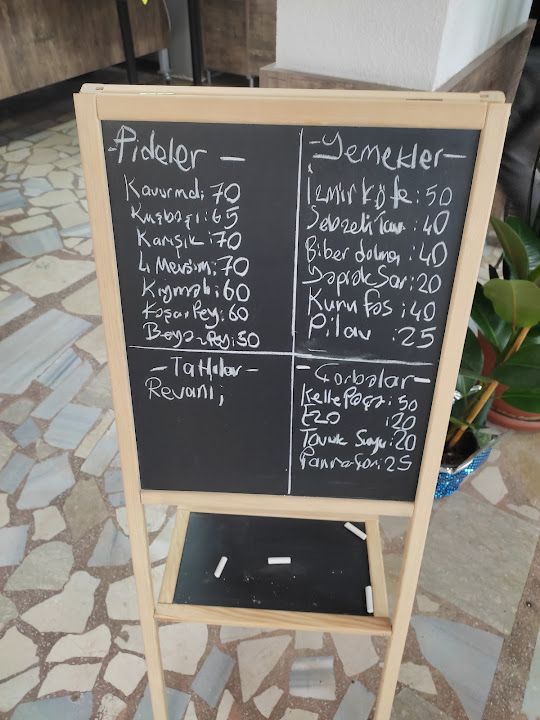 - Pideler -
Kavurmalı 70
Kuşbaşı : 65
Karışık : 70
4 Mevsim : 70
Kıymalı : 60
Kaşar Pey : 60
Beyaz Pey : 50
- Yemekler -
İzmir Köf : 50
Sebzeli Tav : 40
Biber dolma : 40
Yaprak Sar : 20
Kuru Fas : 40
Pilav : 25
- Tatlılar -
Revani ;
- Çorbalar -
Kelle Paça : 50
EZO : 20
Tavuk Suyu : 20
25